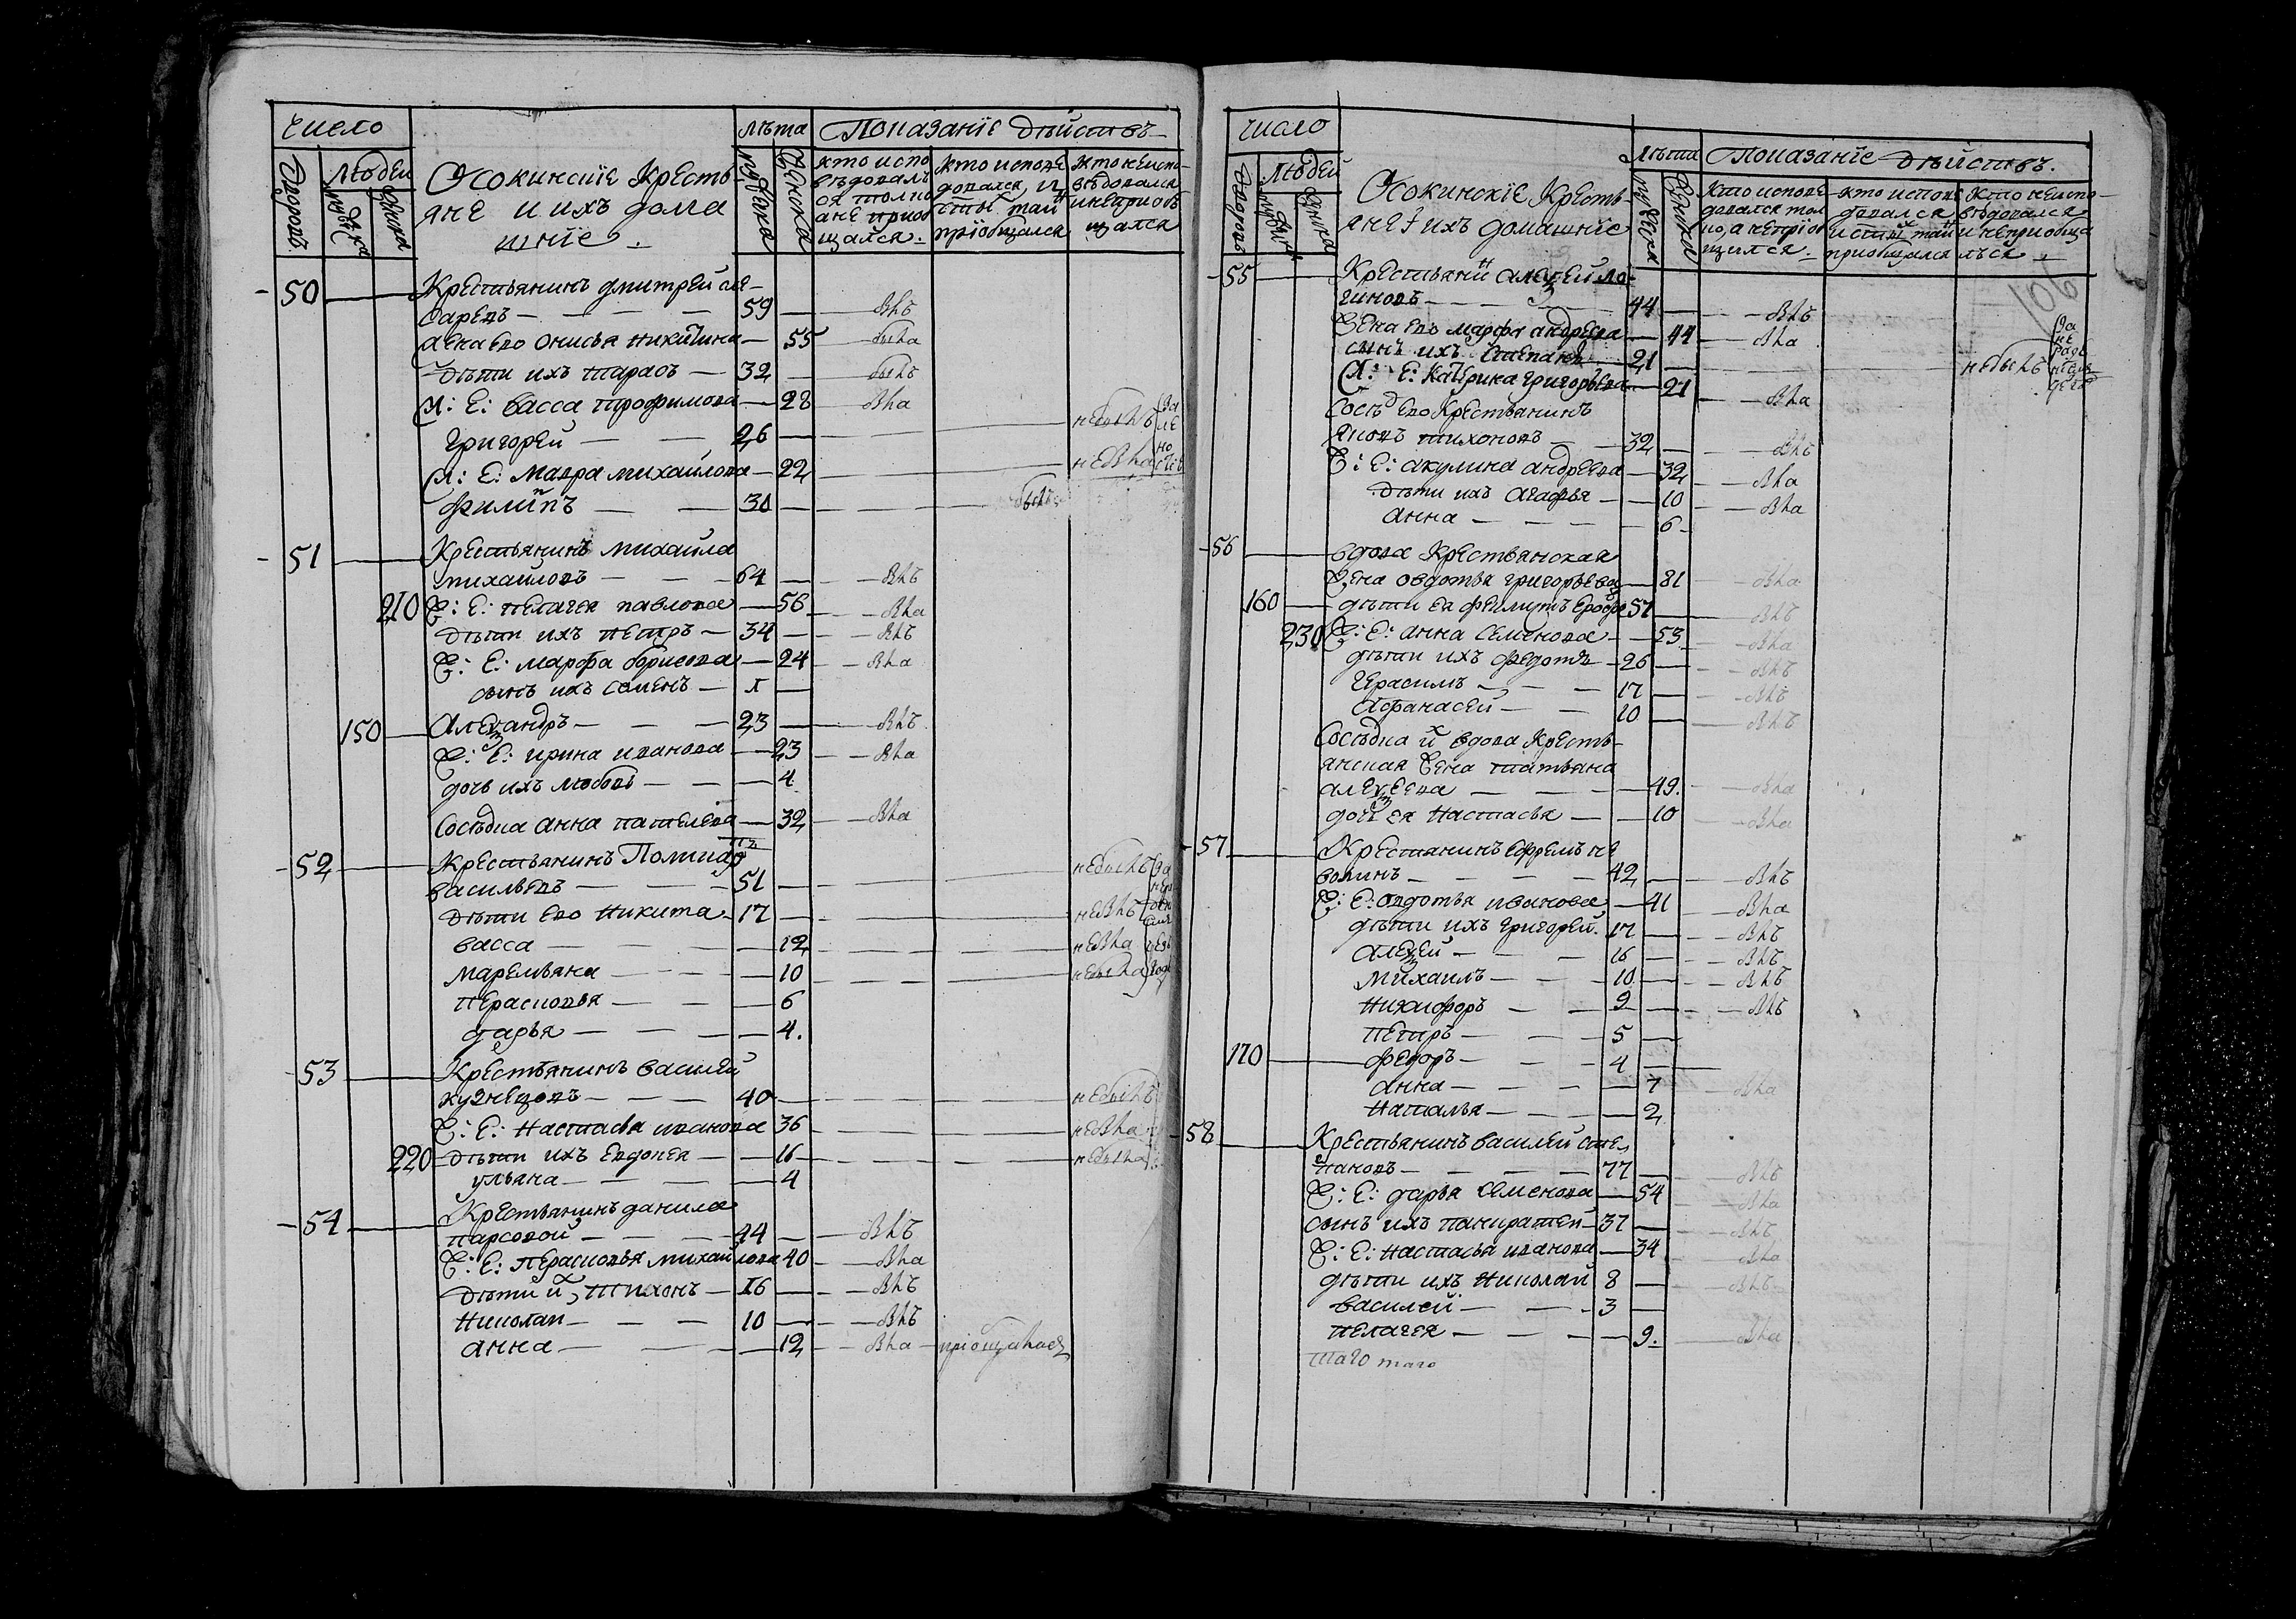 число
Дворовъ
Людей
Мужеска
Женска
Осокинскіе Кресть-
яне и ихъ дома
шніе.
лѣта
мужеска
женска
Показаніе дѣйствъ
кто испо
вѣдовалъ
ся толко
а не приоб
щался.
кто испове
довался, и
стыхъ таин
пріобщался
кто не испо-
вѣдовался
и не приоб
щался
50 Крестьянинъ дмитрей
59 былъ
жена ево онисья никитина 55 была
дѣти ихъ тарасъ 32 былъ
Ж: Е: васса трофимова 28 была
григорей 26 небылъ
Ж: Е: мавра михайлова 22 небыла
филипъ 30 былъ
51 Крестьянинъ михайла
михайловъ 64 былъ
210 Ж: Е: пелагея павлова 56 была
дѣти ихъ петръ 34 былъ
Ж: Е: марфа борисова 24 была
сынъ ихъ семенъ
150 Александръ 23 былъ
Ж: Е: ирина иванова 23 была
дочь ихъ любовь 4
Сосѣдка анна пателева 32 была
52 Крестьянинъ
васильевъ 51 небылъ
дѣти ево никита 17 небылъ
васса 12 небыла
маремьяна 10 небыла
перасковья 6
дарья 4.
53 Крестьянинъ василей
кузнецовъ 40 небылъ
Ж: Е: настасья иванова 36 небыла
220 дѣти ихъ евдокея 16 небыла
ульяна 4
54 Крестьянинъ данила
парсовой 44 былъ
Ж: Е: перасковья михайлова 40 была
дѣти их, тихонъ 16 былъ
николаи 10 былъ
анна 12 была пріощалася
число
Дворовъ
Людей
мужеска
женска
Осокинскіе Кресть-
яне и ихъ домашніе
лѣта
мужеска
женска
Показаніе дѣйствъ.
кто испове
довался тол
ко, а непріоб
щился.
кто испове
довался
и стыхъ таин
приобщался
кто неиспо-
вѣдовался
и неприобща
лъся.
106
55 Крестьянинъ алексей ло-
гиновъ 44 былъ
жена ево марфа андреева 44 была
сынъ ихъ степанъ 21 небылъ
Ж: Е: катерина григорьева 21 была
сосѣд ево крестьянинъ
яковъ тихоновъ 32 былъ
Ж: Е: акулина андреева 32 была
дѣти ихъ агафья 10 была
анна 6
56 вдова крестьянская
жена овдотья григорьева 81 была
160 дѣти ея 57 былъ
230 Ж: Е: анна семенова 53 была
дѣти ихъ федотъ 26 былъ
герасимъ 17 былъ
афанасей 10 былъ
Сосѣдка их вдова кресть-
янская жена татьяна
алексеева 49. была
дочь ея настасья 10 была
57 Крестянинъ ефремъ
42 былъ
Ж: Е: овдотья иванова 41 была
дѣти ихъ григорей 17 былъ
алексей 16 былъ
михаилъ 10 былъ
никифоръ 9 былъ
петръ 5
170 федоръ 4
анна 7 была
наталья 2
58 Крестьянинъ василей сте
пановъ 77 былъ
Ж: Е: дарья семенова 54 была
сынъ ихъ панкратей 37 былъ
Ж: Е: настасья иванова 34 была
дѣти ихъ николай 8 былъ
василей 3
пелагея 9. была
таго таго